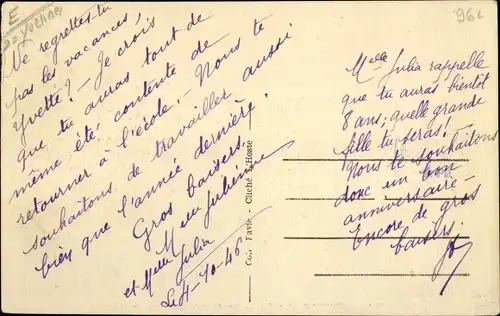 E
Yvelines
96L
Ne regrettes-tu
pas les vacances,
Yvette? - Je crois
que tu auras tout de
même été contente de
retourner à l'école. - Nous te
souhaitons de travailler aussi
bien que l'année dernière!
Gros baisers.
M
et Melle Julia
Le 4-10-46
Cliché L'Hoste
Melle Julia rappelle
que tu auras bientôt
8 ans; quelle grande
fille tu seras!
Nous te souhaitons
donc un bon
anniversaire -
Encore de gros
baisers!